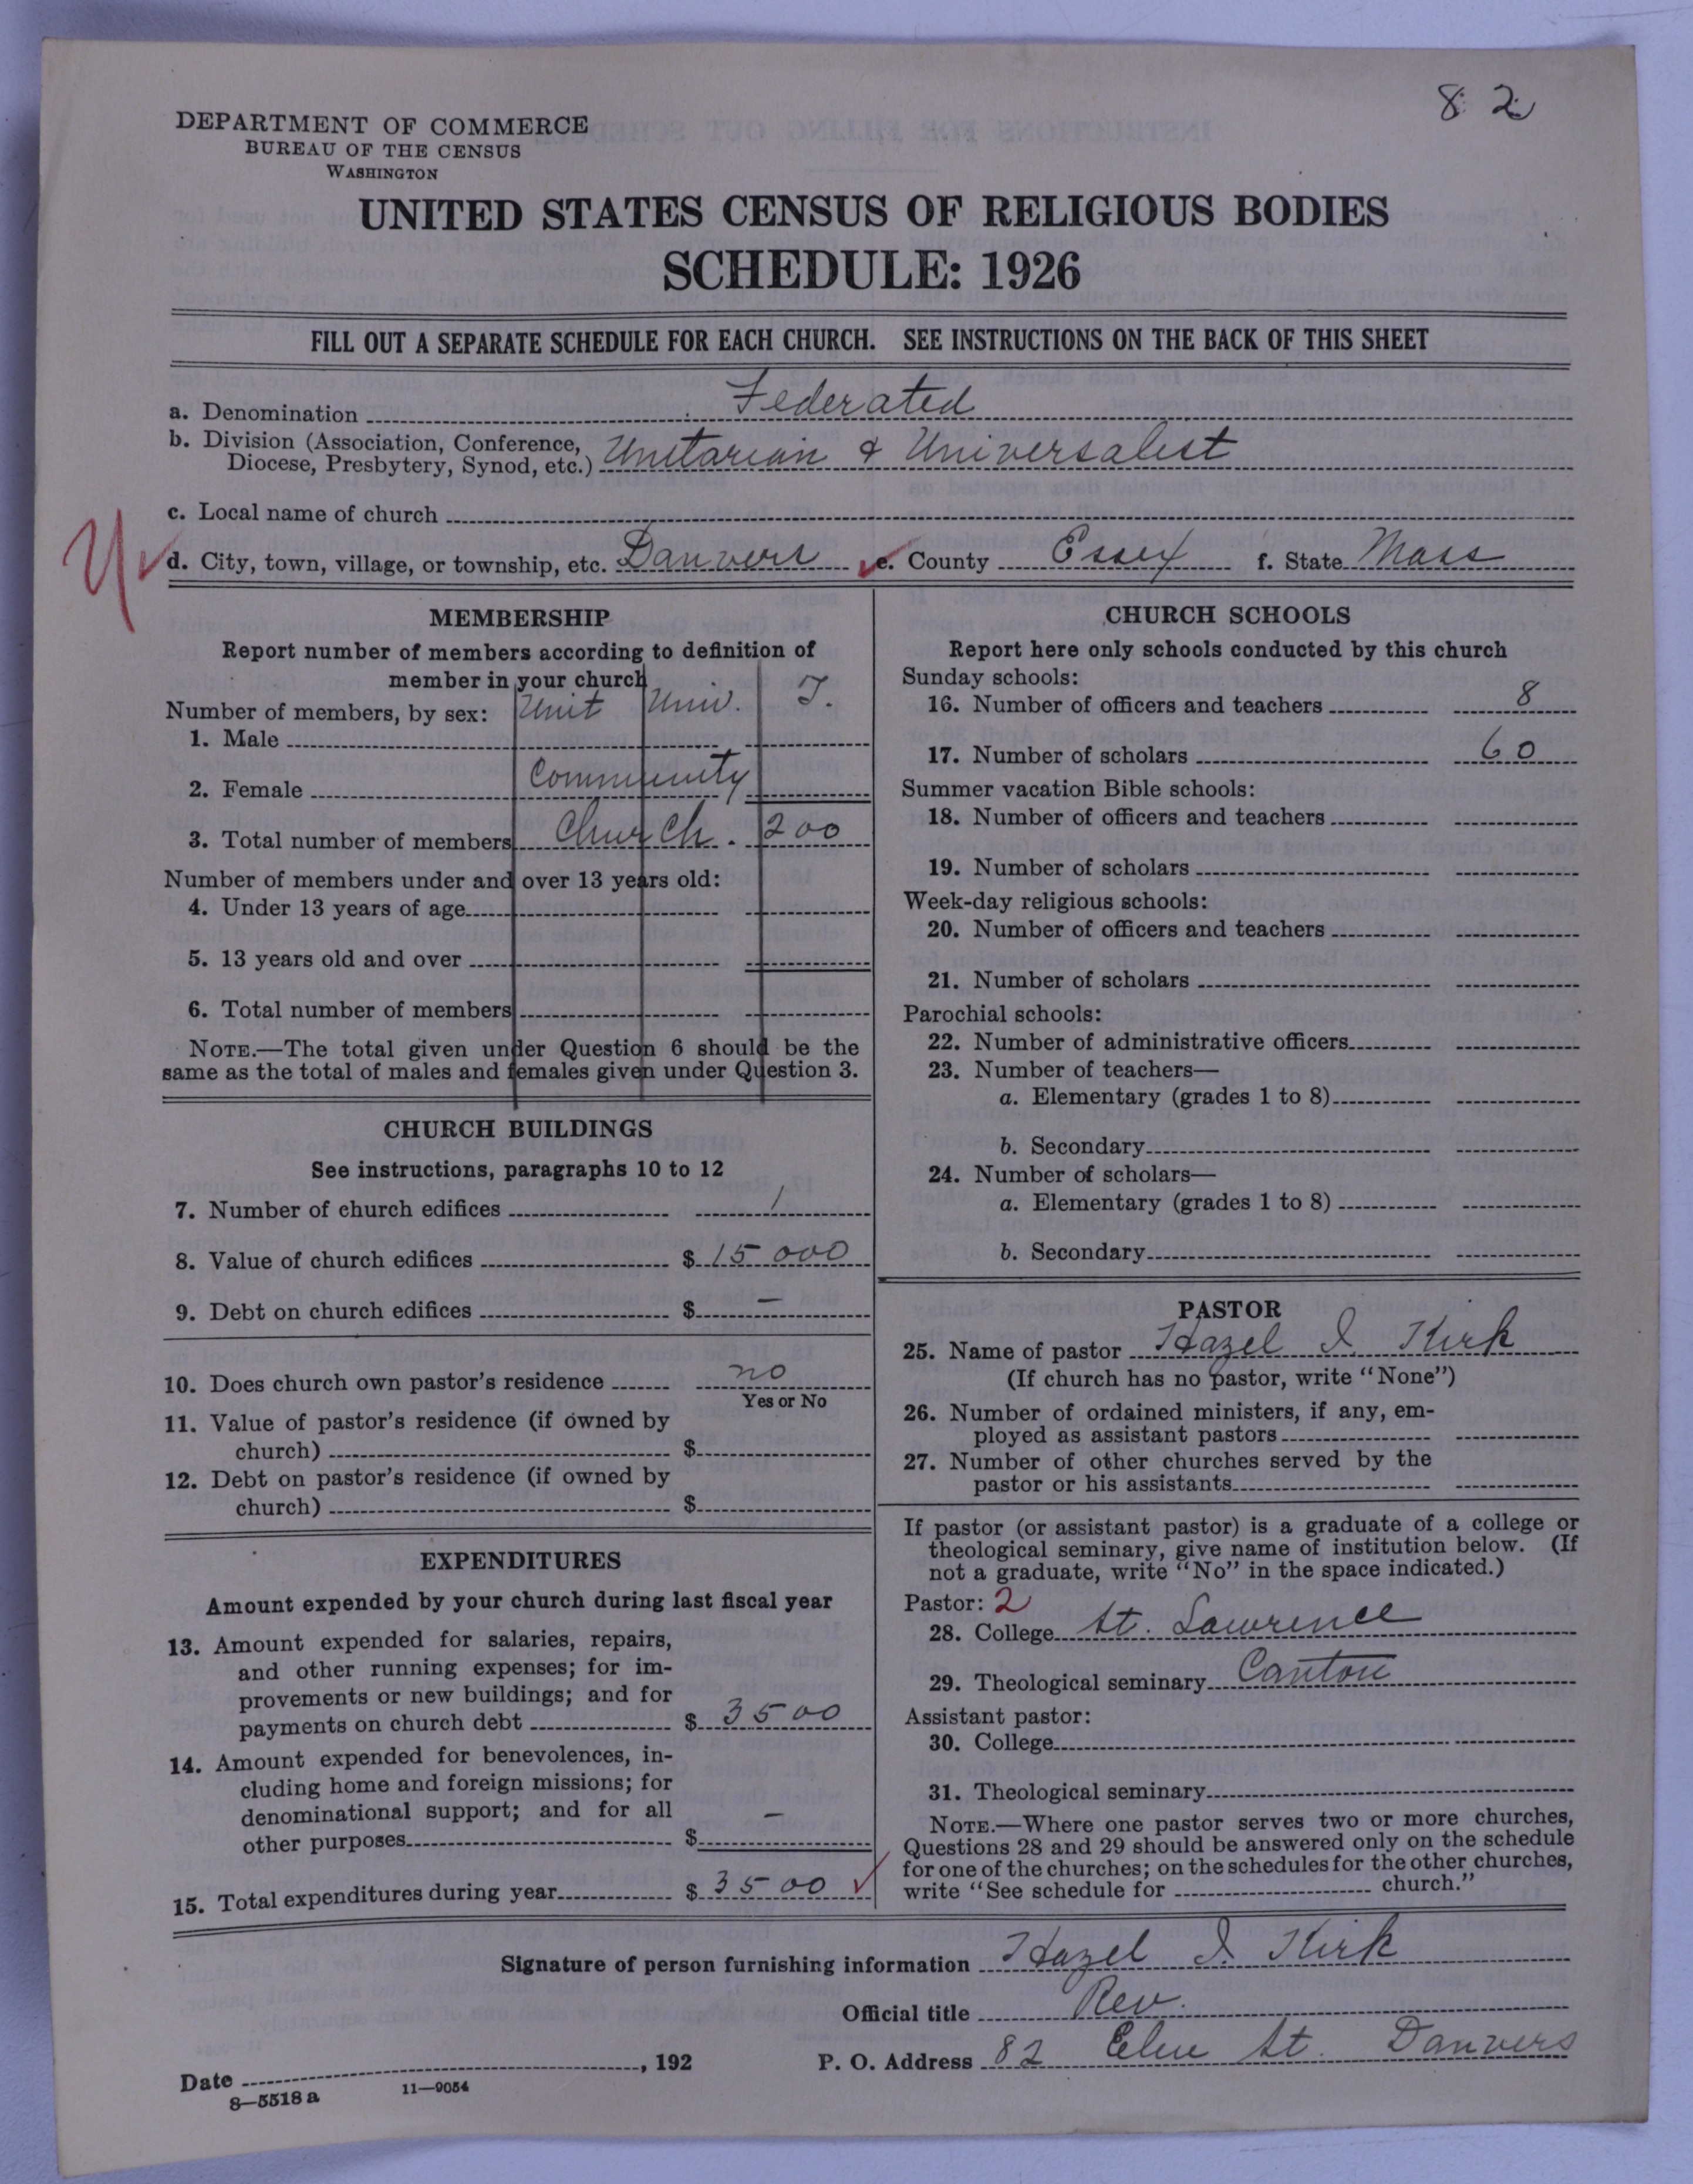 8 2
DEPARTMENT OF COMMERCE
BUREAU OF THE CENSUS
WASHINGTON
UNITED STATES CENSUS OF RELIGIOUS BODIES
SCHEDULE: 1926
FILL OUT A SEPARATE SCHEDULE FOR EACH CHURCH. SEE INSTRUCTIONS ON THE BACK OF THIS SHEET
a. Denomination Federated
b. Division (Association, Conference,
Diocese, Presbytery, Synod, etc.) Unitarian & Universalist
c. Local name of church
d. City, town, village, or township, etc. Danvers e. County Essex f. State Mass
MEMBERSHIP
Report number of members according to definition of
member in your church
Number of members, by sex: Unit Univ. T.
1. Male
2. Female Community
3. Total number of members Church. 200
Number of members under and over 13 years old:
4. Under 13 years of age
5. 13 years old and over
6. Total number of members
NOTE.—The total given under Question 6 should be the
same as the total of males and females given under Question 3.
CHURCH BUILDINGS
See instructions, paragraphs 10 to 12
7. Number of church edifices 1
8. Value of church edifices $ 15 000
9. Debt on church edifices $ —
10. Does church own pastor's residence no
Yes or No
11. Value of pastor's residence (if owned by
church) $
12. Debt on pastor's residence (if owned by
church) $
EXPENDITURES
Amount expended by your church during last fiscal year
13. Amount expended for salaries, repairs,
and other running expenses; for im-
provements or new buildings; and for
payments on church debt $ 3500
14. Amount expended for benevolences, in-
cluding home and foreign missions; for
denominational support; and for all
other purposes $ —
15. Total expenditures during year $ 3500
CHURCH SCHOOLS
Report here only schools conducted by this church
Sunday schools:
16. Number of officers and teachers 8
17. Number of scholars 60
Summer vacation Bible schools:
18. Number of officers and teachers
19. Number of scholars
Week-day religious schools:
20. Number of officers and teachers
21. Number of scholars
Parochial schools:
22. Number of administrative officers
23. Number of teachers—
a. Elementary (grades 1 to 8)
b. Secondary
24. Number of scholars—
a. Elementary (grades 1 to 8)
b. Secondary
PASTOR
25. Name of pastor Hazel I. Kirk
(If church has no pastor, write "None")
26. Number of ordained ministers, if any, em-
ployed as assistant pastors
27. Number of other churches served by the
pastor or his assistants
If pastor (or assistant pastor) is a graduate of a college or
theological seminary, give name of institution below. (If
not a graduate, write "No" in the space indicated.)
Pastor: 2
28. College St. Lawrence
29. Theological seminary Canton
Assistant pastor:
30. College
31. Theological seminary
NOTE.—Where one pastor serves two or more churches,
Questions 28 and 29 should be answered only on the schedule
for one of the churches; on the schedules for the other churches,
write "See schedule for church."
Signature of person furnishing information Hazel I. Kirk
Official title Rev.
Date , 192 P. O. Address 82 Elm St. Danvers
8—5518 a 11—9054